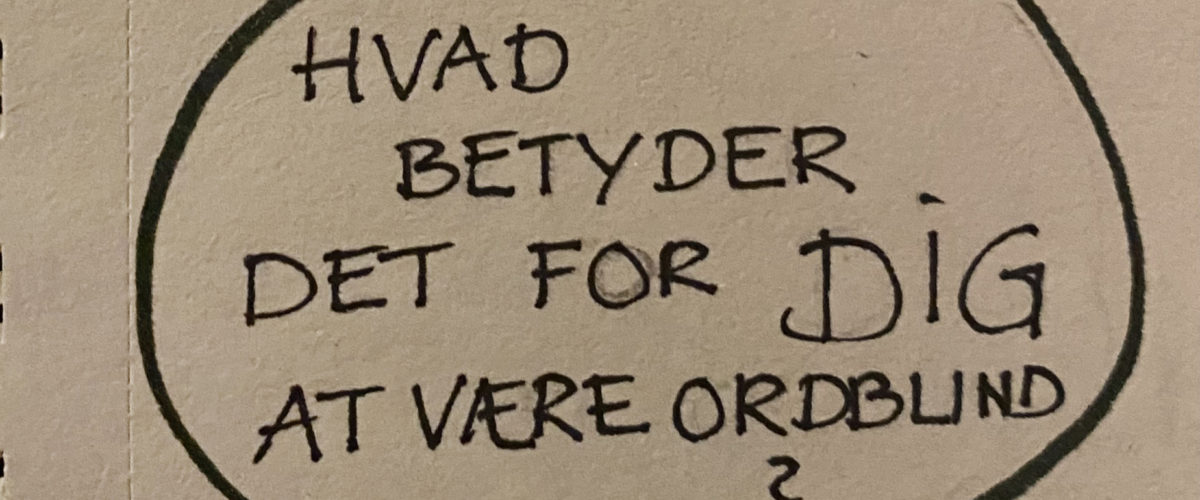 HVAD
BETYDER
DET FOR DiG
AT VÆRE ORDBLIND
?